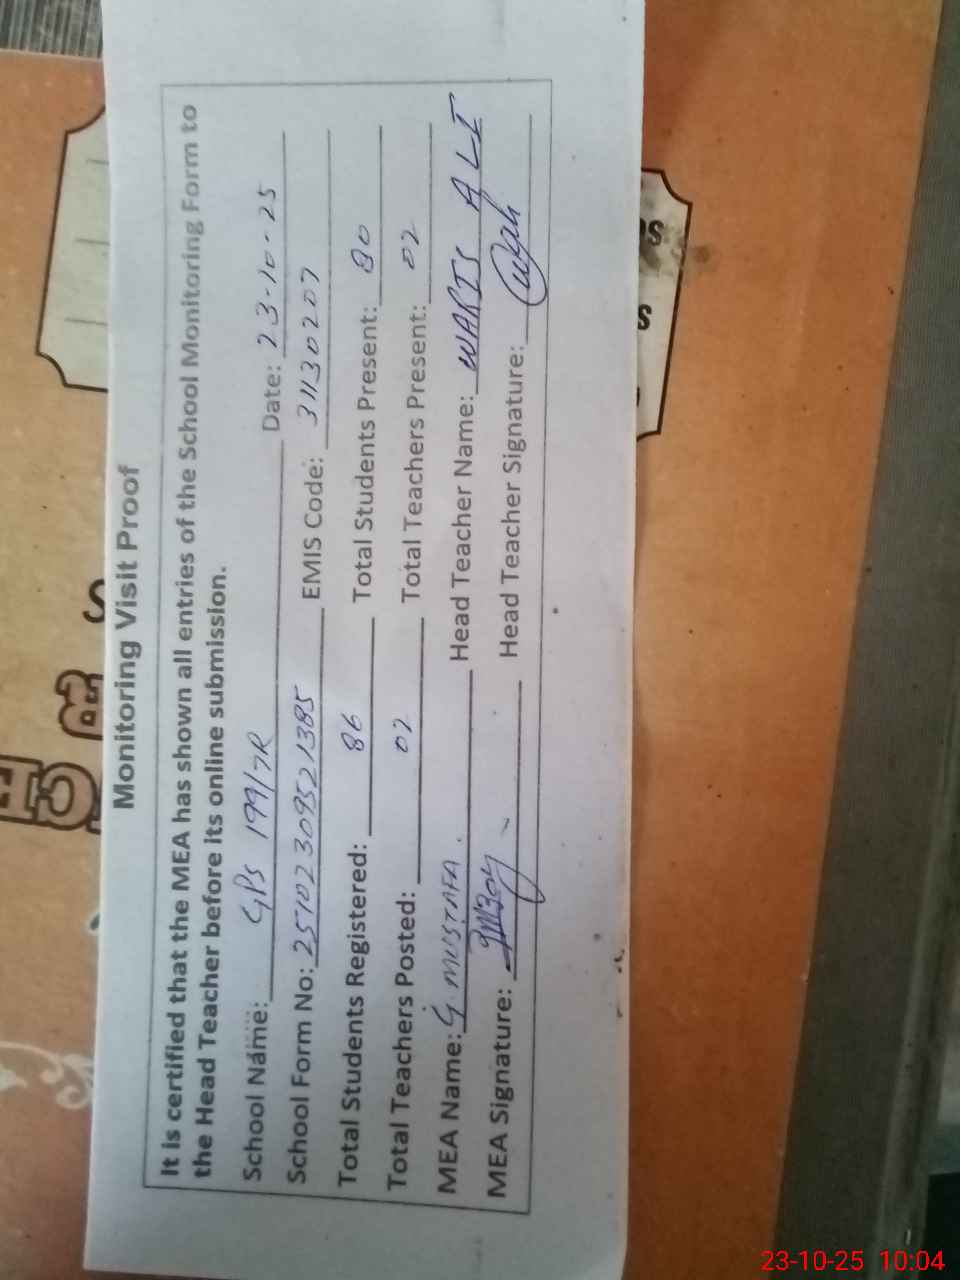 Monitoring Visit Proof
It is certified that the MEA has shown all entries of the School Monitoring Form to
the Head Teacher before its online submission.
School Name: GPS 199/7R Date: 23-10-25
School Form No: 25102309521385 EMIS Code: 31130207
Total Students Registered: 86 Total Students Present: 80
Total Teachers Posted: 02 Total Teachers Present: 02
MEA Name: G. MUSTAFA. Head Teacher Name: WARIS ALI
MEA Signature: Head Teacher Signature:
23-10-25 10:04